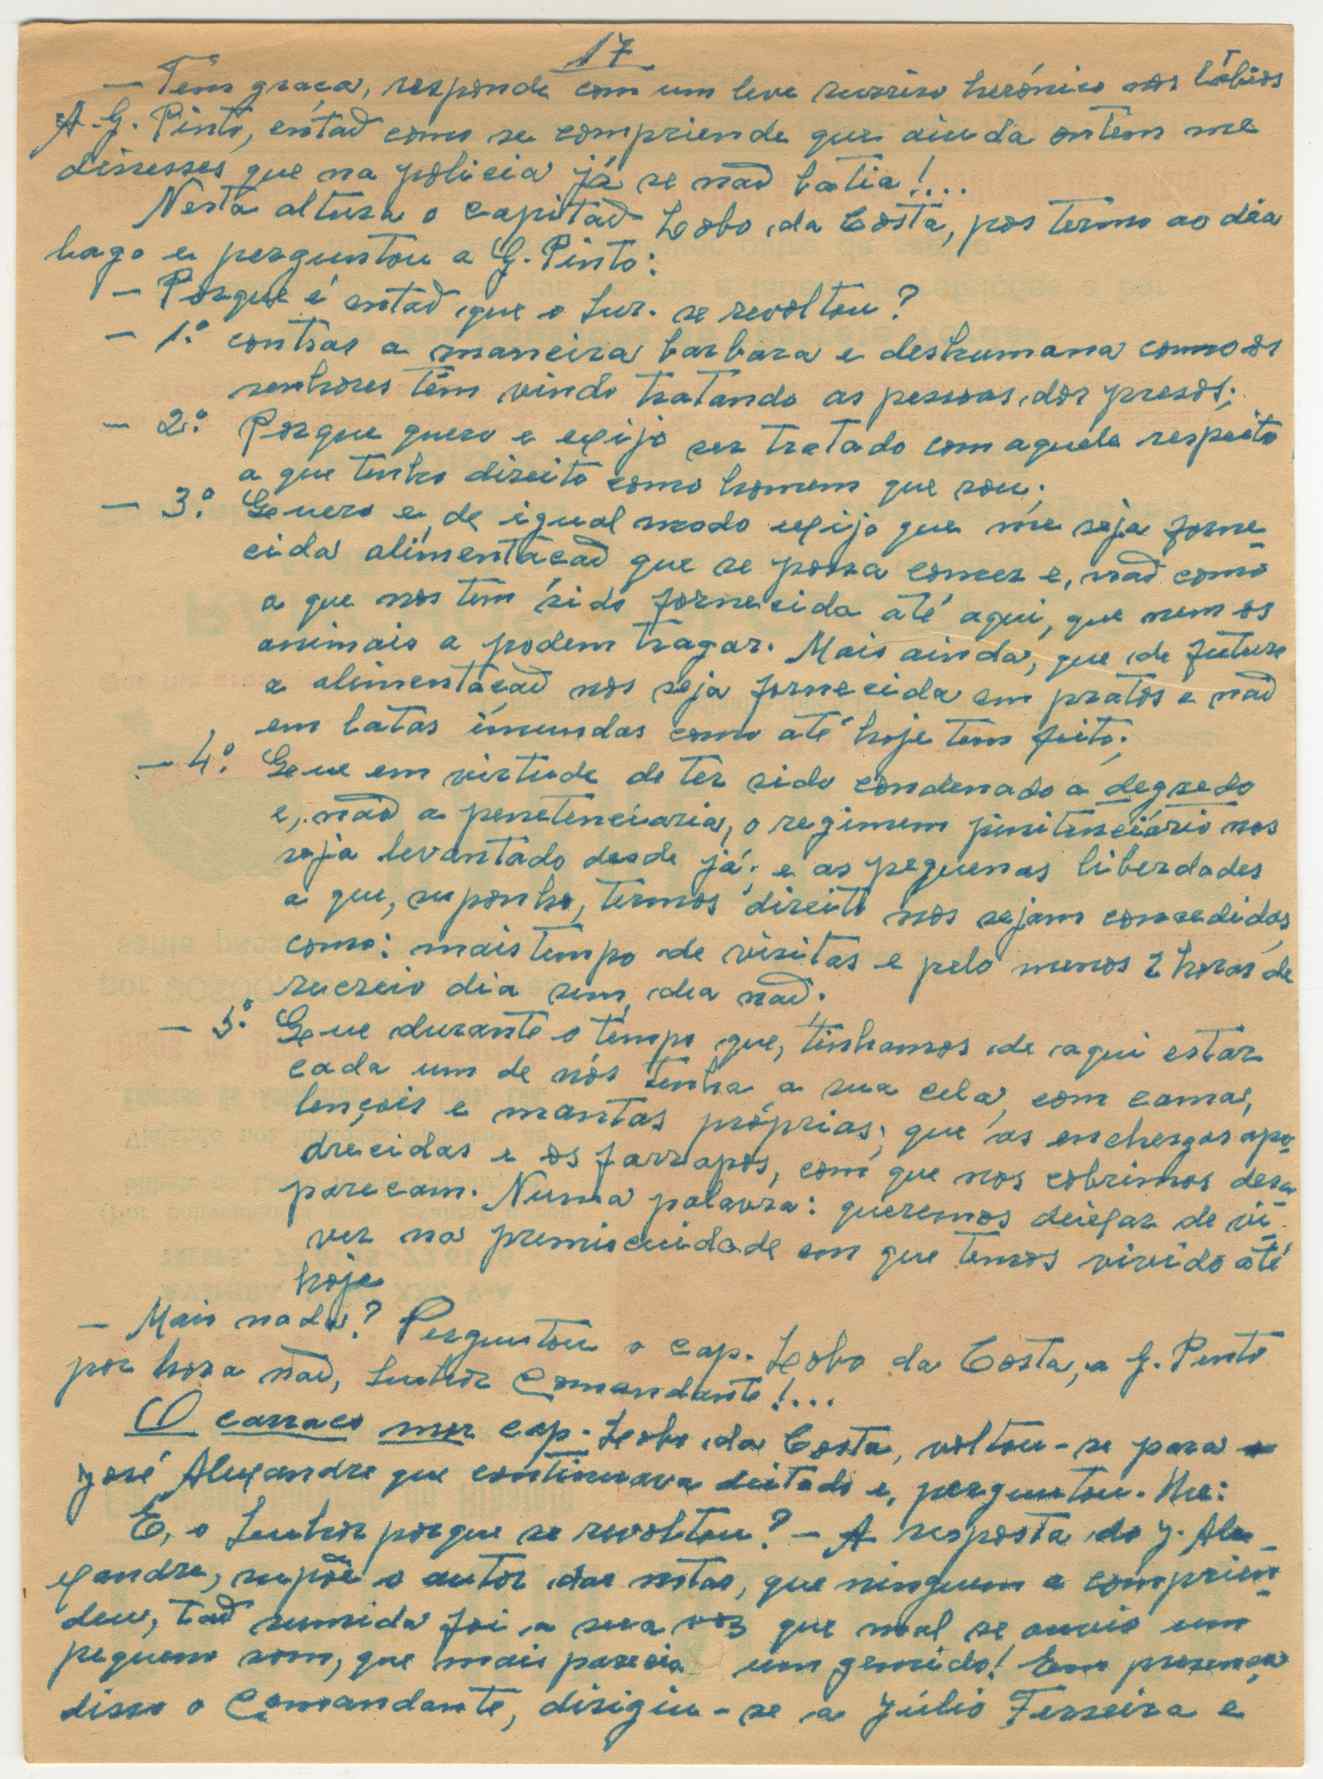 17
— Tem graça, responde com um leve surriso herónico nos lábios
A. G. Pinto, éntaõ como se compriende que ainda ontem me
dissesses que na policia já se naõ batia!...
Nesta altura o capitaõ Lobo da Costa, pos termo ao dia
lago e perguntou a G. Pinto:
— Porque é entaõ que o Snr. se revoltou?
— 1.º contras a maneira barbara e deshumana como os
senhores têm vindo tratando as pessoas dos presos;
— 2.º Porque quero e exijo ser tratado com aquele respeito
a que tenho direito como homem que sou;
— 3.º Quero e, de igual modo exijo que me seja forne-
cida alimentacaõ que se possa comer e, naõ como
a que nos tem sido fornecida até aqui, que nem os
animais a podem tragar. Mais ainda, que de futuro
a alimentacaõ nos seja fornecida em pratos e naõ
em latas imundas como até hoje tem feito;
— 4.º Que em virtude de ter sido condenado a degredo
e, naõ a penetenciaria, o regimem penitenciário nos
seja levantado desde já; e as pequenas liberdades
a que, suponho, termos direito nos sejam concedidos,
como: mais tempo de visitas e pelo menos 2 horas de
recreio dia sim, dia naõ;
— 5.º Que durante o tempo que, tinhamos de aqui estar
cada um de nós tenha a sua cela, com camas,
lençois e mantas próprias; que as enchergas apo-
drecidas e os farrapos, com que nos cobrimos desa-
pareçam. Numa palavra: queremos deixar de vi-
ver na premiscuidade em que temos vivido até
hoje
— Mais nada? Perguntou o cap. Lobo da Costa, a G. Pinto
por hora naõ, Senhor Comandante!...
O carraco mor cap. Lobo da Costa, voltou-se para
José Alexandre que continuava deitado e, perguntou-lhe:
E, o Senhor porque se revoltou? — A resposta do J. Ale-
xandre, supõe o autor das notas, que ninguem a comprien-
deu, taõ sumida foi a sua voz que mal se ouvio um
pequeno som, que mais parecia um gemido! Em presença
disso o Comandante, dirigiu-se a Júlio Ferreira e